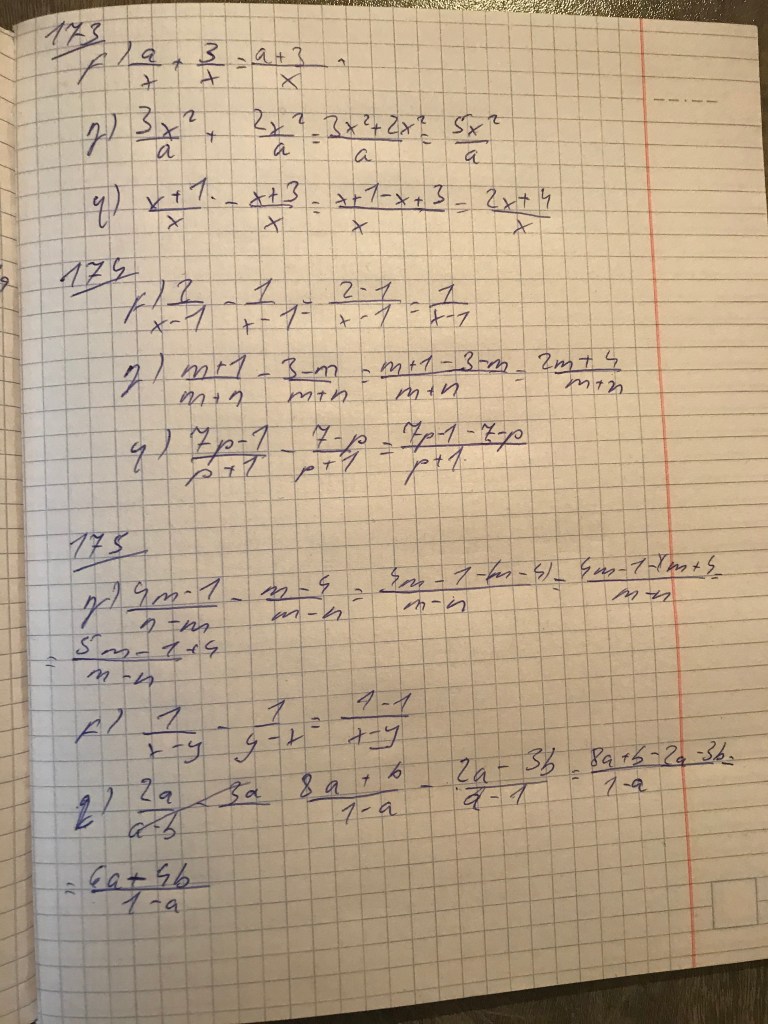 173
г) a/x + 3/x = a+3/x
д) 3x²/a + 2x²/a = 3x²+2x²/a = 5x²/a
ч) x+1/x - x+3/x = x+1-x+3/x = 2x+4/x
174
г) 2/x-1 - 1/x-1 = 2-1/x-1 = 1/x-1
д) m+1/m+n - 3-m/m+n = m+1-3-m/m+n = 2m+4/m+n
ч) 7p-1/p+1 - 7-p/p+1 = 7p-1-7-p/p+1
175
д) 4m-1/n-m - m-4/m-n = 4m-1-(m-4)/m-n = 4m-1-m+4/m-n =
= 5m-1+4/m-n
г) 1/x-y - 1/y-x = 1-1/x-y
8a+b/1-a - 2a-3b/a-1 = 8a+b-2a-3b/1-a =
= 6a+4b/1-a